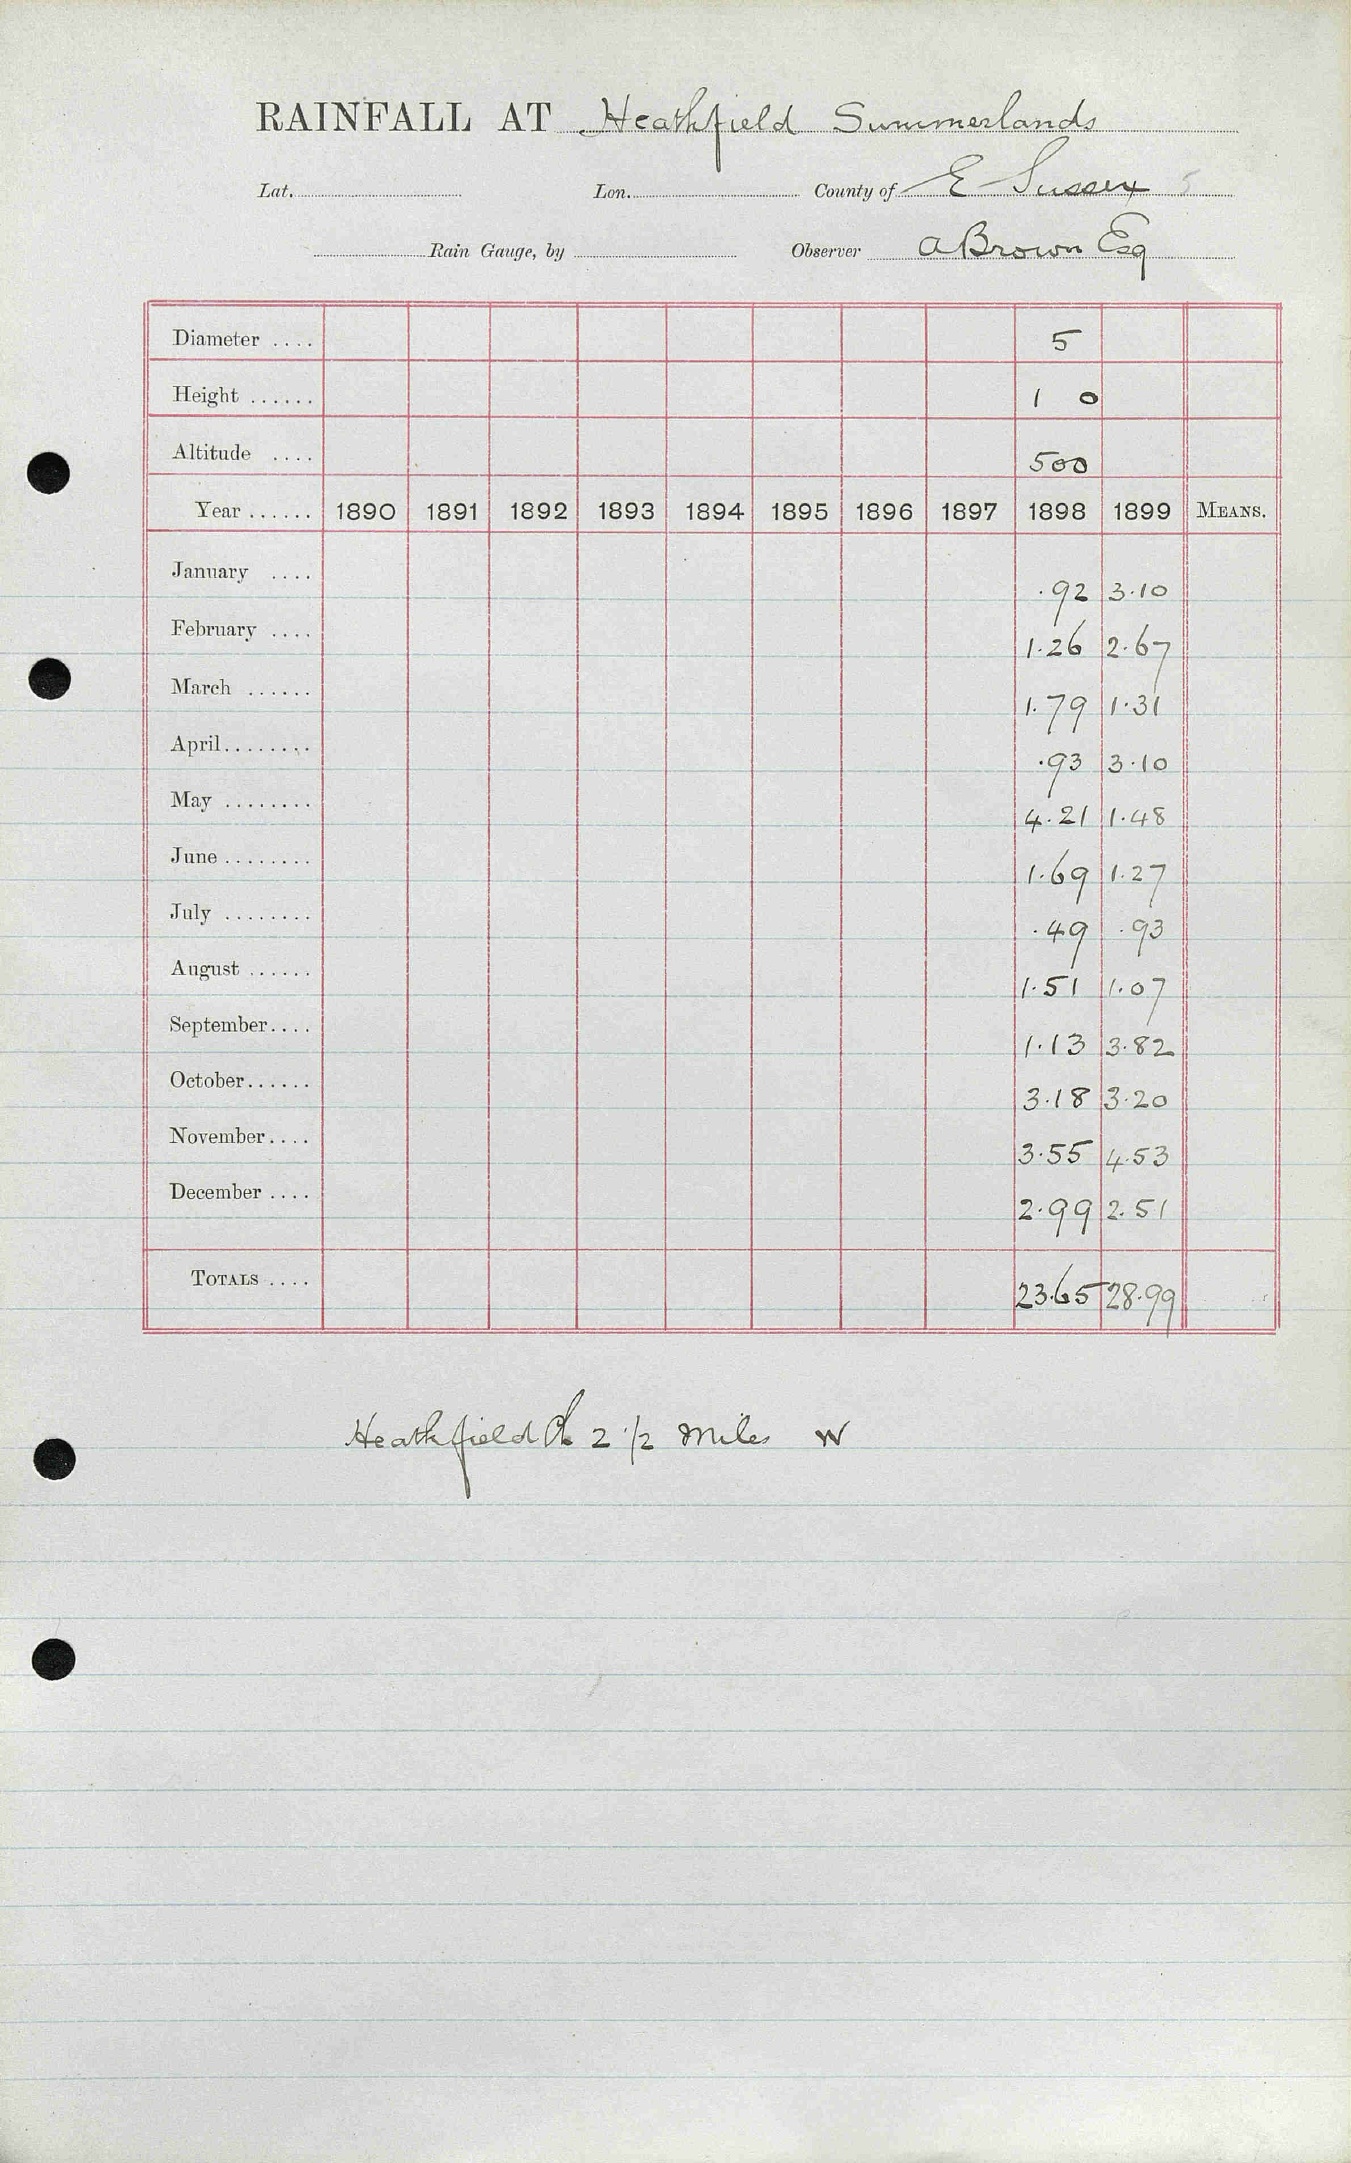 RAINFALL AT Heathfield Summerlands
Lat. Lon. County of E Sussex 5
Rain Gauge, by Observer A Brown Esq
Diameter .... 5
Height ...... 1 0
Altitude .... 500
Year ...... 1890 1891 1892 1893 1894 1895 1896 1897 1898 1899 MEANS.
January .... .92 3.10
February .... 1.26 2.67
March ...... 1.79 1.31
April........ .93 3.10
May ........ 4.21 1.48
June ........ 1.69 1.27
July ........ .49 .93
August ...... 1.51 1.07
September.... 1.13 3.82
October...... 3.18 3.20
November.... 3.55 4.53
December .... 2.99 2.51
TOTALS .... 23.65 28.99
Heathfield Ch 2 1/2 miles W